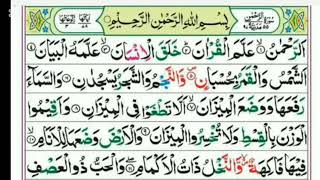 بِسْمِ اللّٰهِ الرَّحْمٰنِ الرَّحِيْمِ
اَلرَّحْمٰنُ ۙ عَلَّمَ الْقُرْاٰنَ ؕ خَلَقَ الْاِنْسَانَ ۙ عَلَّمَهُ الْبَيَانَ
اَلشَّمْسُ وَالْقَمَرُ بِحُسْبَانٍ ۪ وَّالنَّجْمُ وَالشَّجَرُ يَسْجُدٰنِ وَالسَّمَآءَ
رَفَعَهَا وَوَضَعَ الْمِيْزَانَ ۙ اَلَّا تَطْغَوْا فِى الْمِيْزَانِ وَاَقِيْمُوا
الْوَزْنَ بِالْقِسْطِ وَلَا تُخْسِرُوا الْمِيْزَانَ وَالْاَرْضَ وَضَعَهَا لِلْاَنَامِ ۙ
فِيْهَا فَاكِهَةٌ ۪ۙ وَّالنَّخْلُ ذَاتُ الْاَكْمَامِ ۖ وَالْحَبُّ ذُو الْعَصْفِ